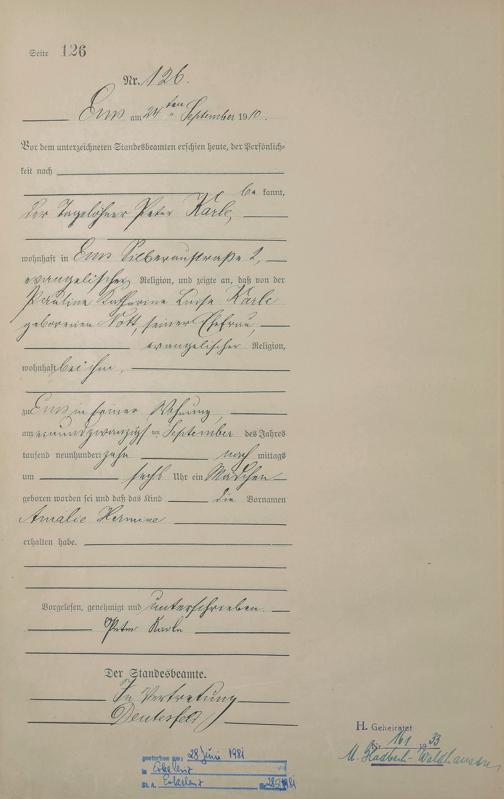 Seite 126
Nr. 126.
Ems am 24ten September 1910.
Vor dem unterzeichneten Standesbeamten erschien heute, der Persönlich-
keit nach
be kannt,
der Tagelöhner Peter Karle,
wohnhaft in Ems Silberaustraße 2,
evangelischer Religion, und zeigte an, daß von der
Pauline Katharine Luise Karle
geborenen Nott, seiner Ehefrau,
evangelischer Religion,
wohnhaft bei ihm,
zu Ems in seiner Wohnung,
am September des Jahres
tausend neunhundert zehn nach mittags
um sechs Uhr ein Mädchen
geboren worden sei und daß das Kind die Vornamen
Amalie Hermine
erhalten habe.
Vorgelesen, genehmigt und unterschrieben.
Peter Karle
Der Standesbeamte.
In Vertretung
H. Geheiratet
1933
gestorben am: 28 Juni 1981
in Erkelenz
St. A. Erkelenz Nr.